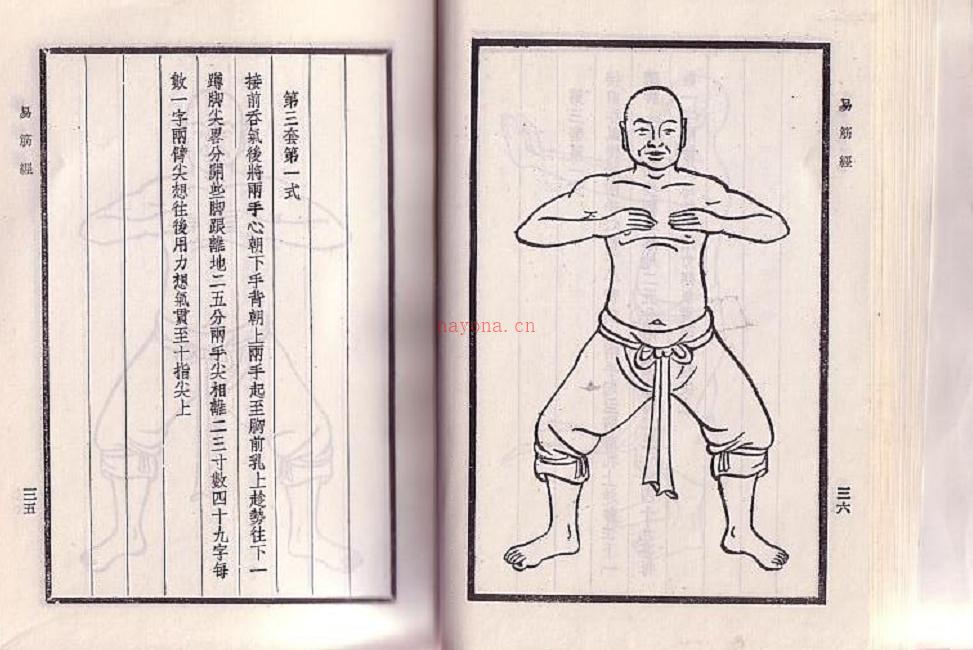 易筋經
第三套第一式
接前吞氣後將兩手心朝下手背朝上兩手起至胸前乳上趁勢往下一
蹲脚尖畧分開些脚跟離地二五分兩手尖相離二三寸數四十九字每
數一字兩臂尖想往後用力想氣貫至十指尖上
三五
易筋經
三六
nayona.cn